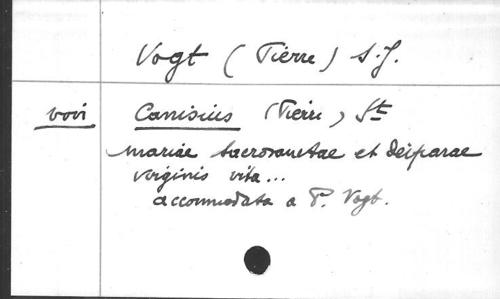 Vogt (Pierre) S.J.
voir Canisius (Pierre) St
Mariae sacrosanctae et deiparae
virginis vita...
accommodata a P. Vogt.